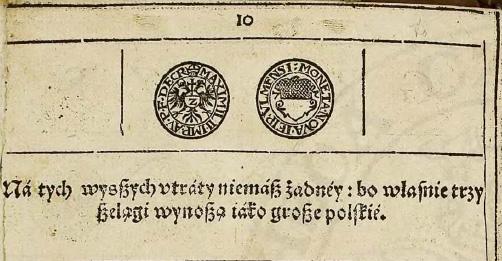 10
MAXIMILI:II:IMP:AV:P:F:DECRE
Z
MONETA:NOVA:IERI:VLMENSI:
Ná tych wysſzych vtráty niemáſz żadnéy: bo właſnie trzy
ſzelągi wynoſzą iáko groſze polſkié.